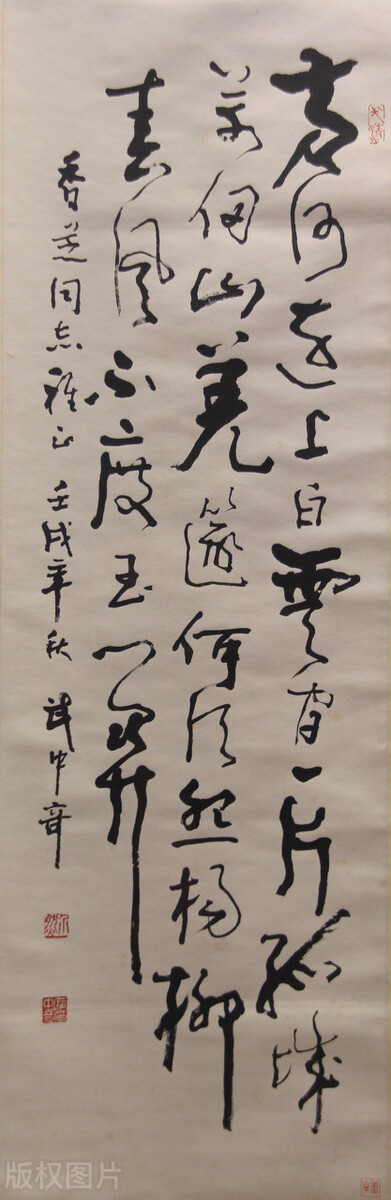 黄河远上白云间一片孤城
万仞山羌笛何须怨杨柳
春风不度玉门关
香芝同志雅正 壬戌年秋 武中奇
版权图片